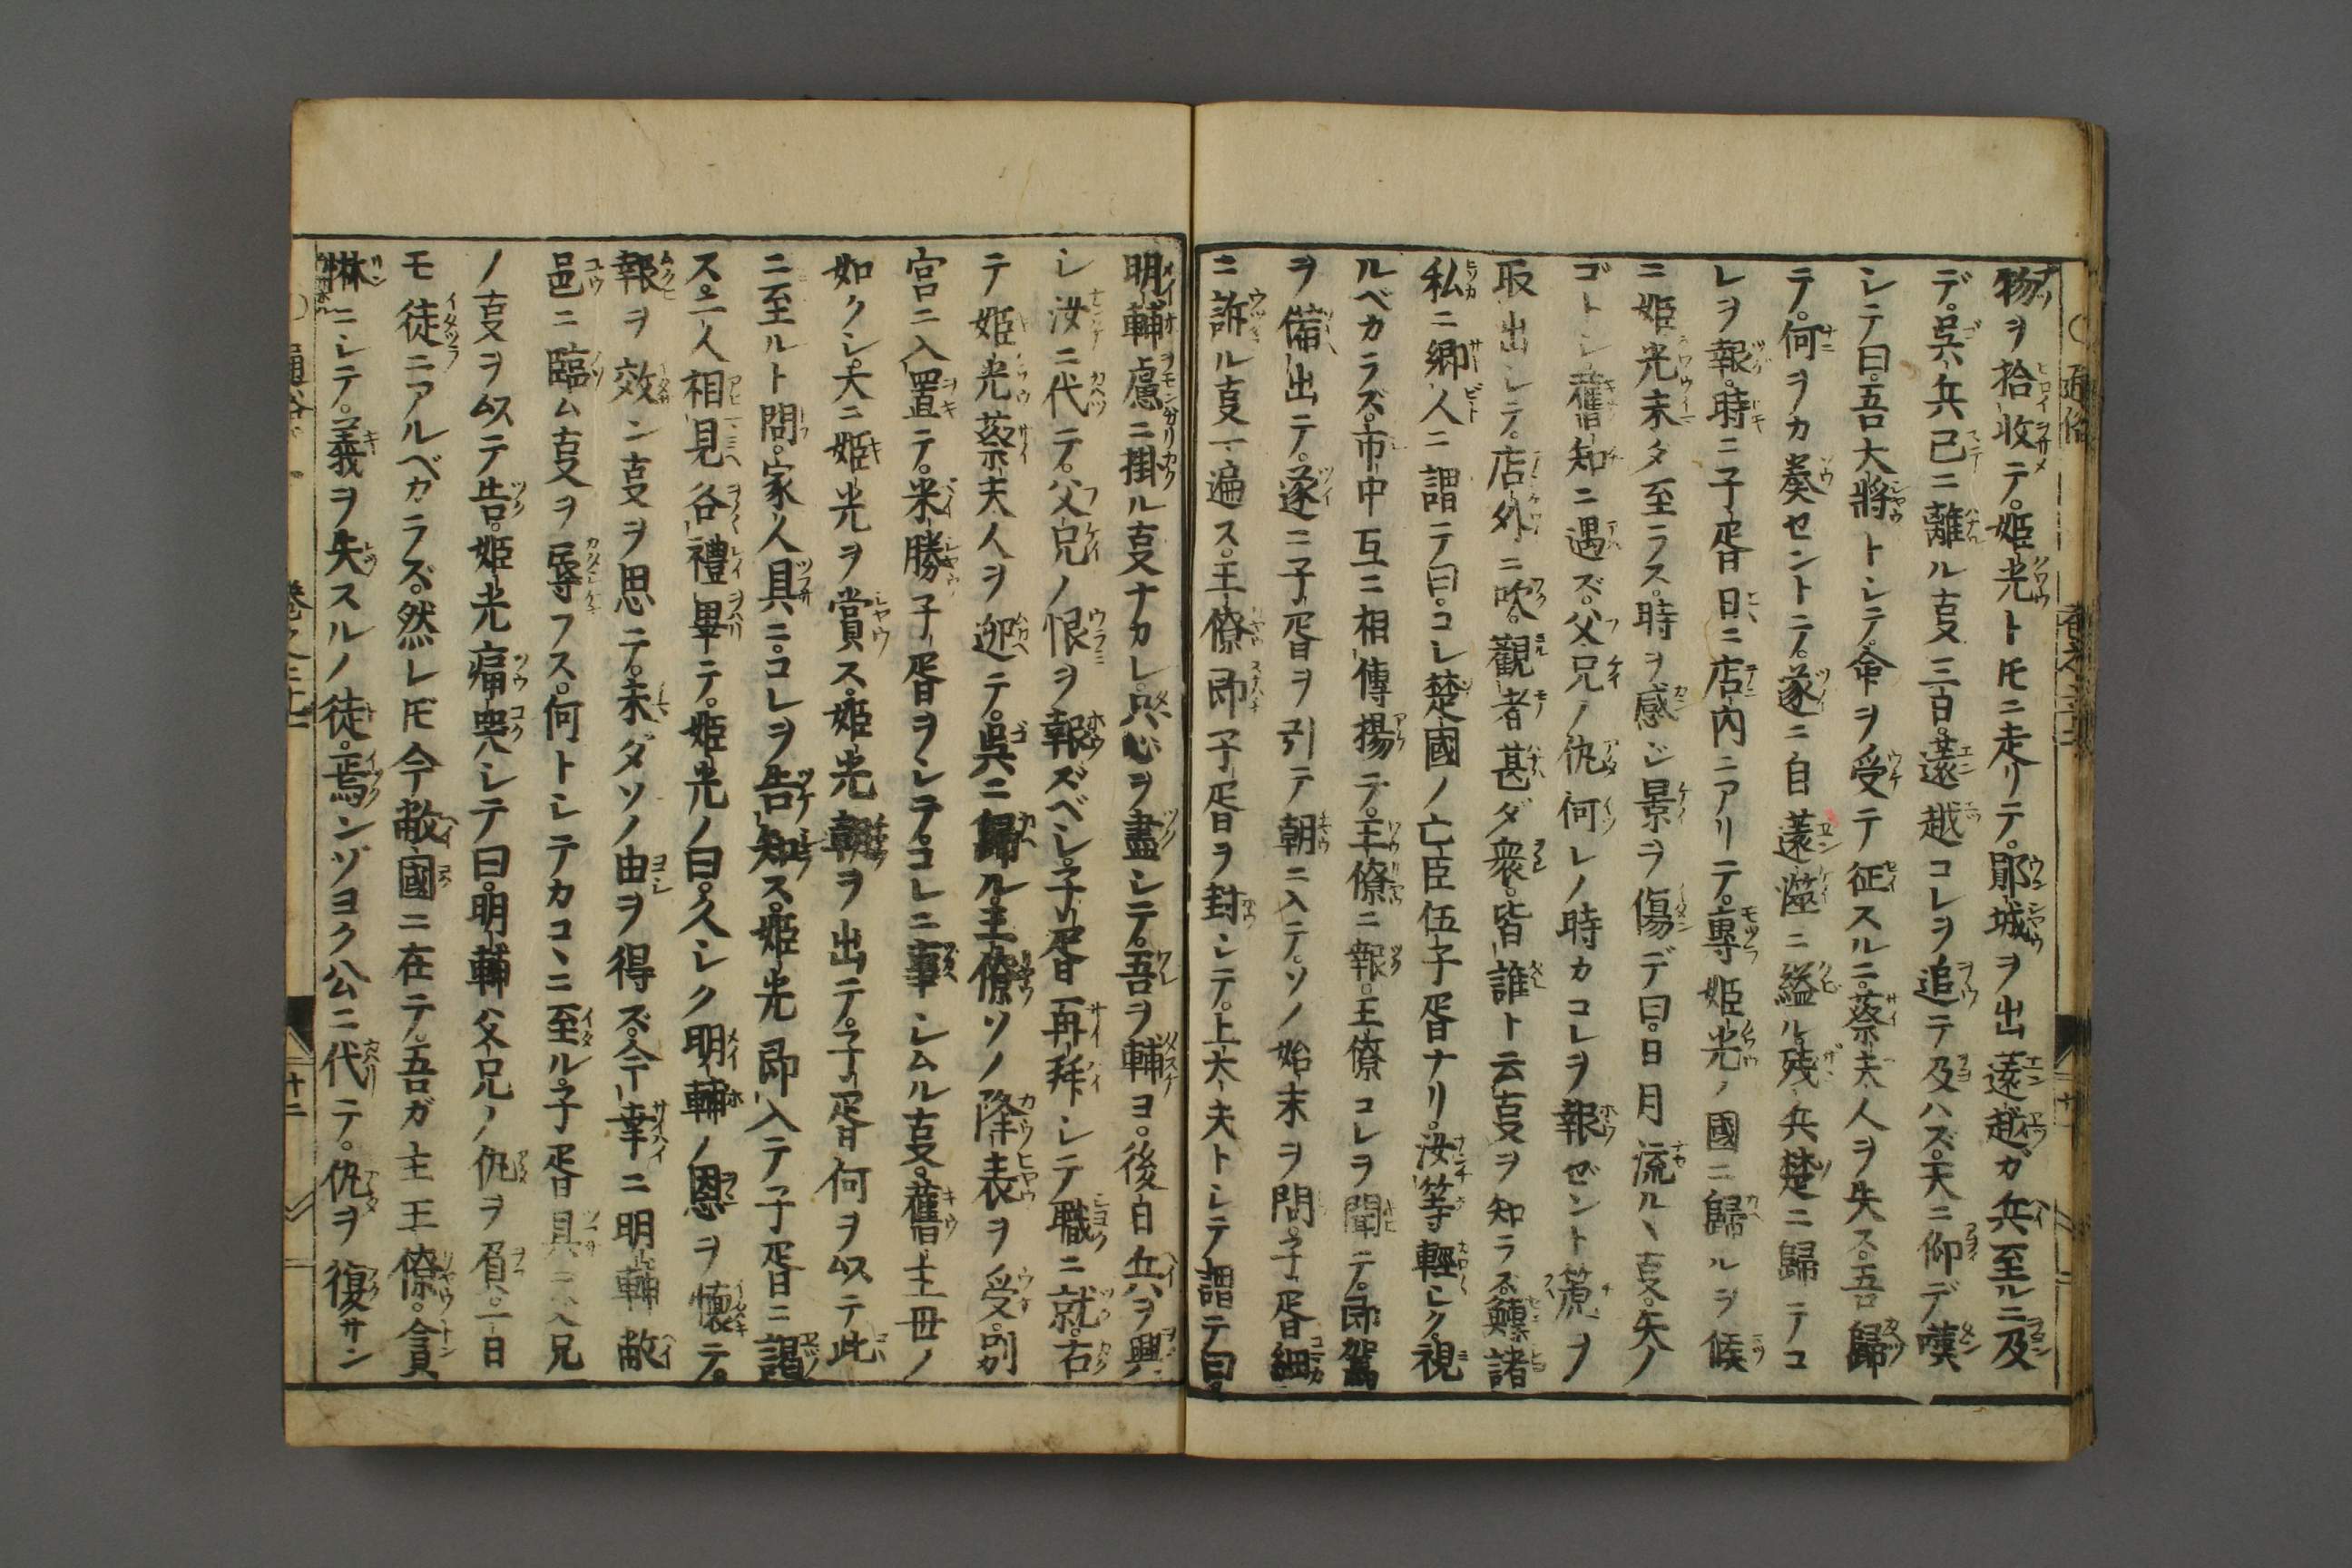 物ヲ拾收テ。姫光トモニ走リテ。鄖城ヲ出薳越ガ兵至ルニ及
デ。呉兵已ニ離ル叓三日。薳越コレヲ追テ及ハズ。天ニ仰デ嘆
シテ曰。吾大將トシテ。命ヲ受テ征スルニ。蔡夫人ヲ失ス。吾歸
テ。何ヲカ奏セントニテ。遂ニ自薳澨ニ縊ル。殘兵楚ニ歸テコ
レヲ報。時ニ子胥日ニ店内ニアリテ。專姫光ノ國ニ歸ルヲ候
ニ姫光未タ至ラス。時ヲ感ジ景ヲ傷デ曰。日月流ルヽ叓。矢ノ
ゴトシ舊知ニ遇ズ。父兄ノ仇何レノ時カコレヲ報ゼント箎ヲ
取出シテ。店外ニ吹。觀者甚ダ衆。皆誰ト云叓ヲ知ラズ。鱄諸
私ニ郷人ニ謂テ曰。コレ楚國ノ亡臣伍子胥ナリ。汝等輕シク視
ルベカラズ。市中互ニ相傳揚テ。王僚ニ報。王僚コレヲ聞テ。即駕
ヲ備出テ。遂ニ子胥ヲ引テ朝ニ入テ。ソノ始末ヲ問。子胥細
ニ訴ル叓一遍ス。王僚即子胥ヲ封シテ。上大夫トシテ謂テ曰
明輔慮ニ掛ル叓ナカレ。只心ヲ盡シテ。吾ヲ輔ヨ。後日兵ヲ興
シ汝ニ代テ。父兄ノ恨ヲ報ズベシ。子胥再拜シテ職ニ就。右
テ姫光蔡夫人ヲ迎テ。呉ニ歸ル。王僚ソノ降表ヲ受。別
宮ニ入置テ。米勝子胥ヲシテ。コレニ事シムル叓。舊主母ノ
如クシ。大ニ姫光ヲ賞ス。姫光朝ヲ出テ。子胥何ヲ以テ此
ニ至ルト問。家人具ニ。コレヲ告知ス。姫光即入テ子胥ニ謁
ス。二人相見各禮畢テ。姫光ノ曰。久シク明輔ノ恩ヲ懷テ。
報ヲ效ン叓ヲ思テ。未ダソノ由ヲ得ズ。今幸ニ明輔敝
邑ニ臨ム叓ヲ辱フス。何トシテカコヽニ至ル。子胥具ニ父兄
ノ叓ヲ以テ告。姫光痛哭シテ曰。明輔父兄ノ仇ヲ負。一日
モ徒ニアルベカラズ。然レトモ今敝國ニ在テ。吾ガ主王僚。貪
惏ニシテ。義ヲ失スルノ徒。焉ンゾヨク公ニ代テ。仇ヲ復サン